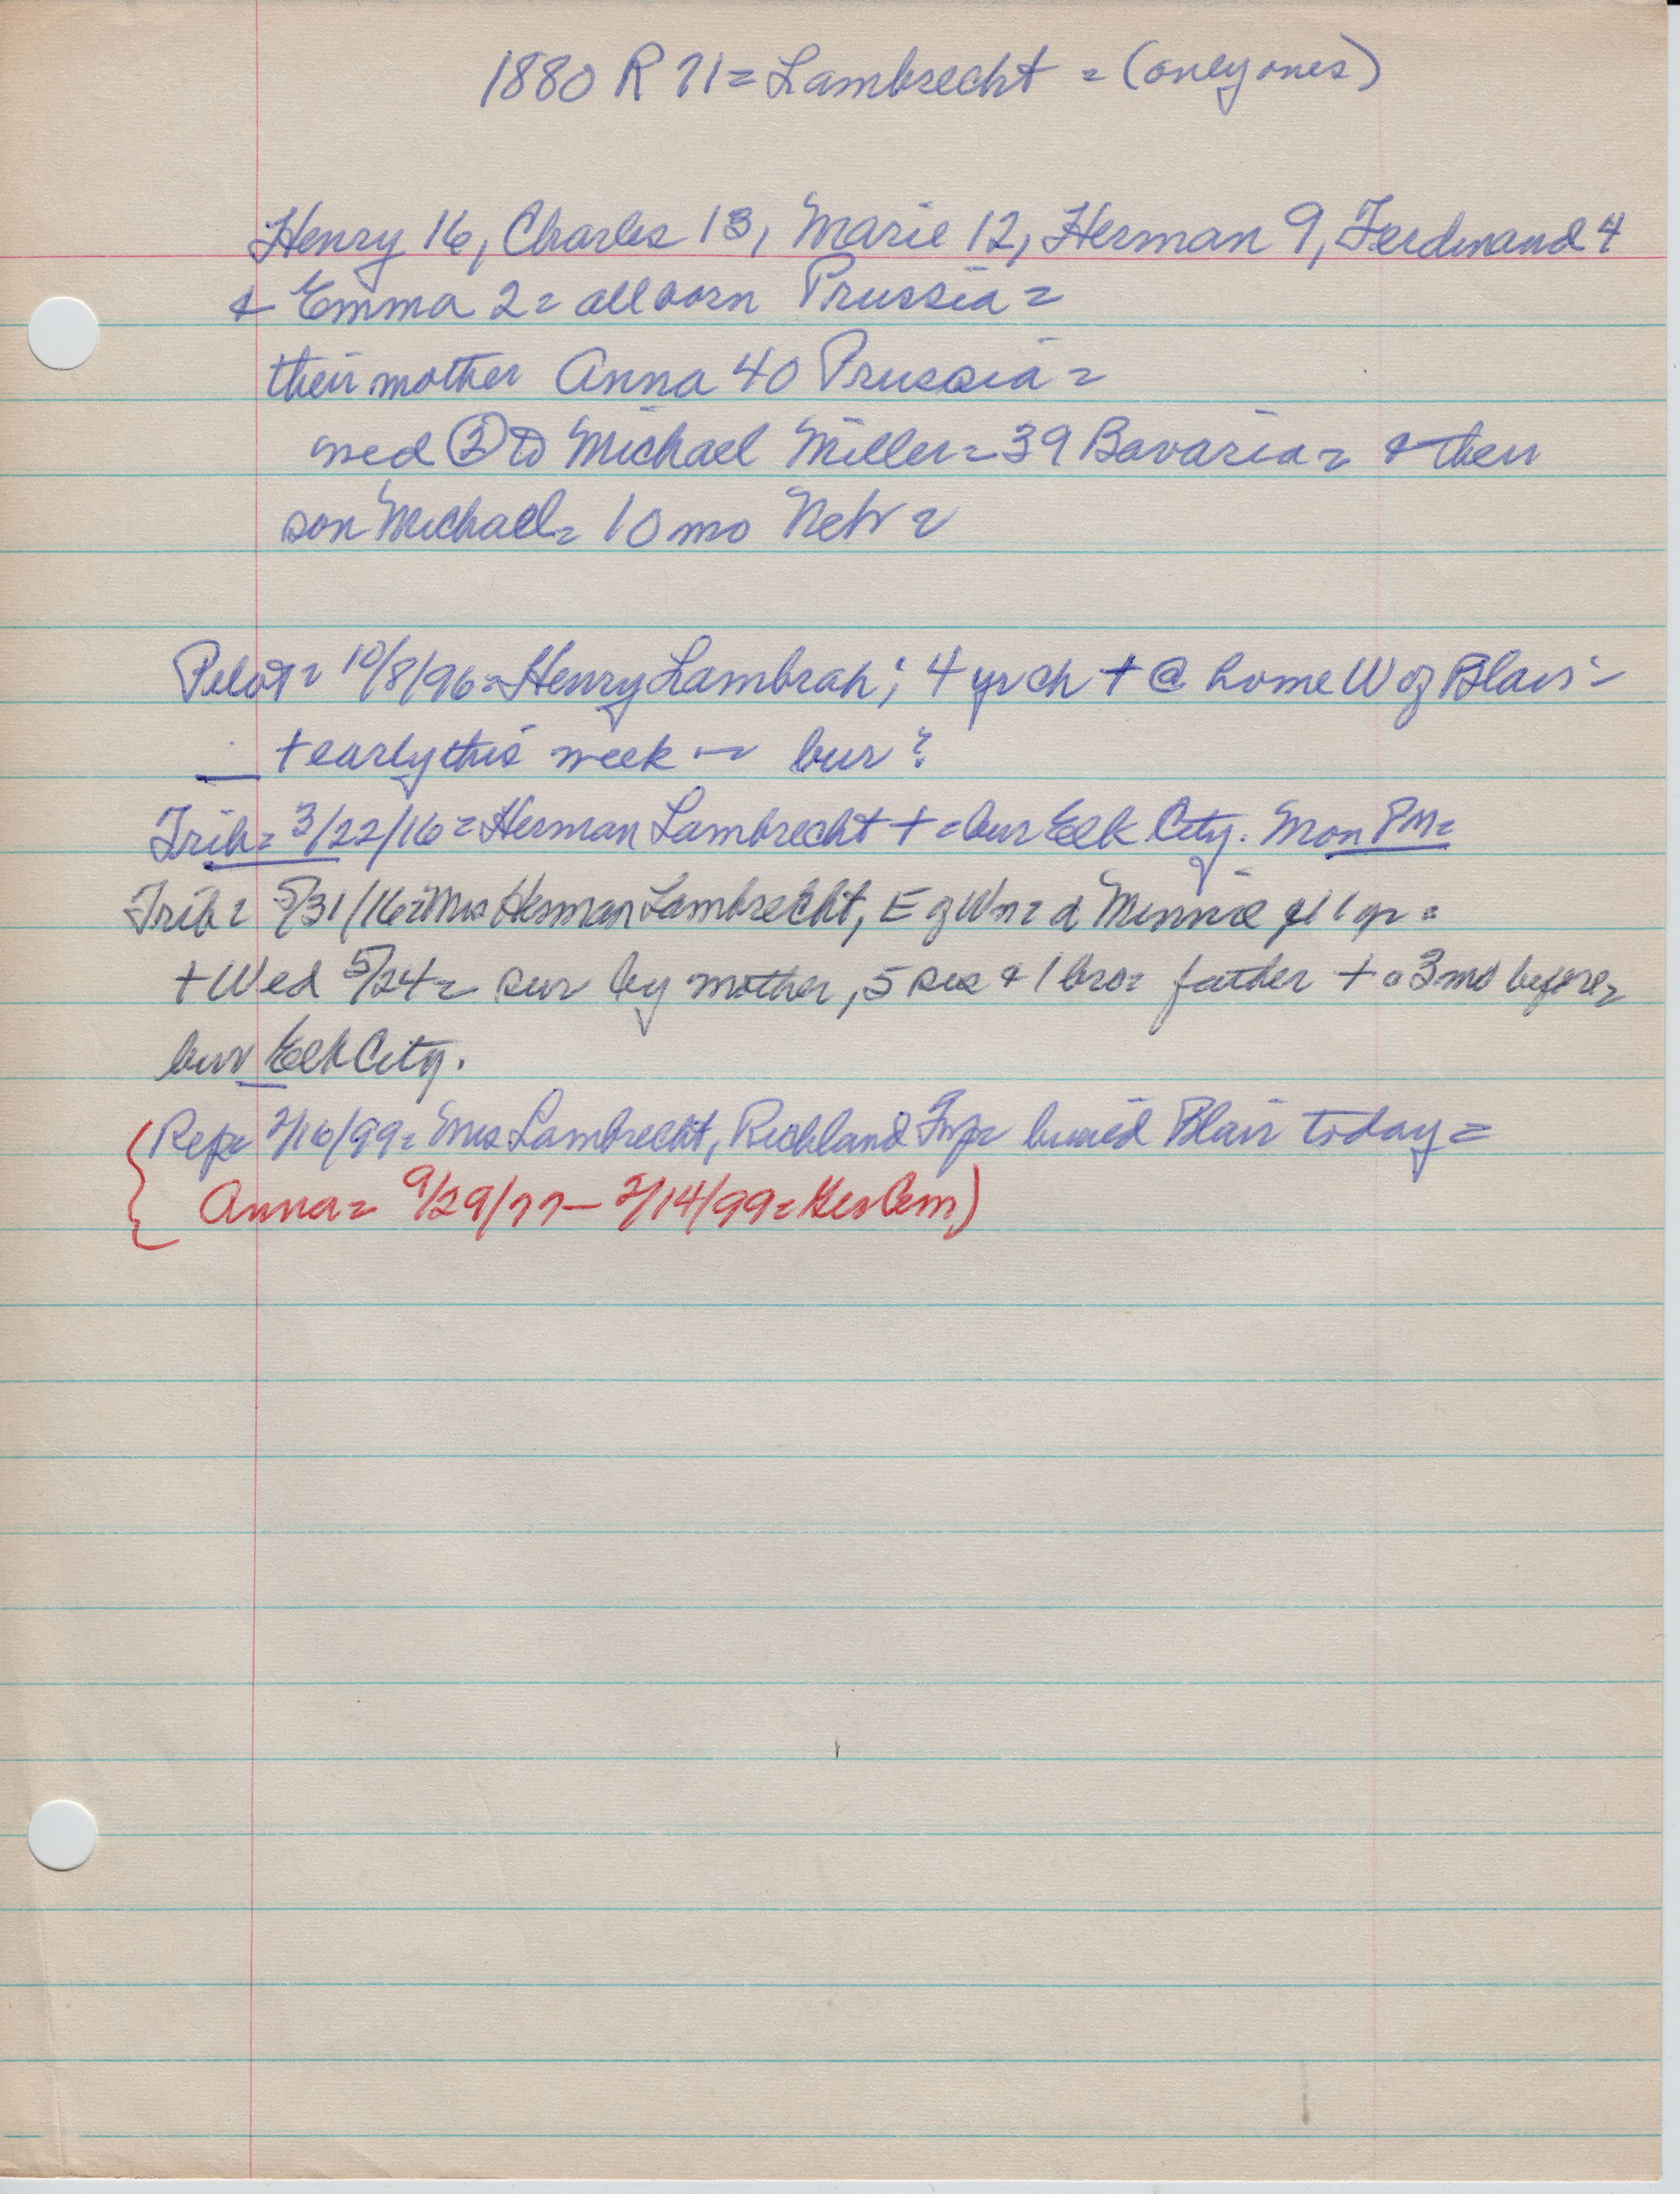 1880 R 71 = Lambrecht = (only ones)
Henry 16, Charles 13, Marie 12, Herman 9, Ferdinand 4
& Emma 2 = all born Prussia =
their mother Anna 40 Prussia =
med ② to Michael Miller = 39 Bavaria = & their
son Michael = 10 mo Nebr =
Pilot = 10/8/96 = Henry Lambrah; 4 yr ch + @ home W of Blair =
+ early this week — bur?
Trib = 3/22/16 = Herman Lambrecht + = bur Elk City. Mon PM =
Trib = 5/31/16 = Mrs Herman Lambrecht, E of Wn = d Minnie of 11 yr =
+ Wed 5/24 = sur by mother, 5 sis & 1 bro = father + a 3 mo before =
bur Elk City.
Rep = 2/16/99 = Mrs Lambrecht, Richland Twp = buried Blair today =
Anna = 9/29/77 – 2/14/99 = Cem)